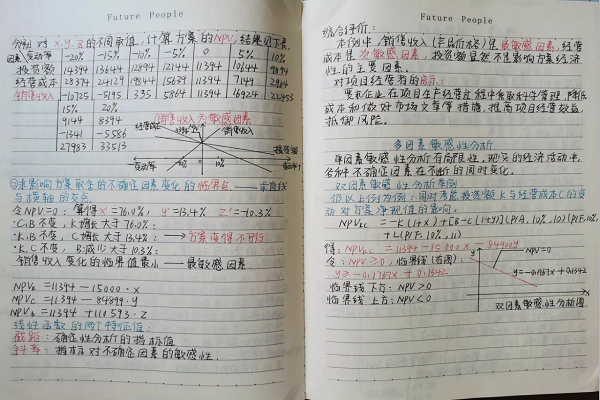 Future People
分别对x,y,z的不同取值,计算方案的NPV,结果见下表。
因素 变动率 -20% -15% -10% -5% 0 5% 10%
投资额 14394 13644 12894 12144 11394 10644 9894
经营成本 28374 24129 19844 15639 11394 7149 2904
销售收入 -10725 -5195 335 5864 11394 16924 22453
15% 20%
9144 8394
-1341 -5586
27983 33513
销售收入为敏感因素
经营成本
销售收入
投资额
变动率
10%
10%
②求影响方案取舍的不确定因素变化的临界点 —— 求直线
与横轴的交点
令NPV=0:算得x'=76.0%, y'=13.4% z'=-10.3%
·C.B不变,K增长大于76.0%:
·K.B不变,C增长大于13.4%: → 方案变得不可行
·K.C不变,B减少大于10.3%:
销售收入变化的临界值最小 —— 最敏感因素
NPVK=11394-15000·x
NPVC=11394-84899·y
NPVB=11394+110593·z
线性函数的两个特征值:
截距:确定性分析的指标值
斜率:指标对不确定因素的敏感性.
Future People
综合评价:
本例中,销售收入(产品价格)是最敏感因素,经营
成本是次敏感因素,投资额显然不是影响方案经济
性的主要因素。
对项目经营者的启示:
要求企业在项目生产经营过程中采取科学管理,降低
成本和做好市场文章等措施,提高项目经营效益,
抵御风险。
多因素敏感性分析
单因素敏感性分析有局限性,现实的经济活动中,
各种不确定因素在不断的同时变化。
双因素敏感性分析举例
仍以上例为例:同时考虑投资额K与经营成本C的变
动对方案净现值的影响。
NPVKC=-K(1+x)+[B-C(1+y)](P/A,10%,10)(P/F,10%,1)
+L(P/F,10%,11)
得:NPVKC=11394-15000x-84900y
令:NPV≥0,临界线(右图):
y≥-0.1767x+0.1342
临界线下方:NPV>0
临界线上方:NPV<0
NPV=0
y=-0.1767x+0.1342
双因素敏感性分析图